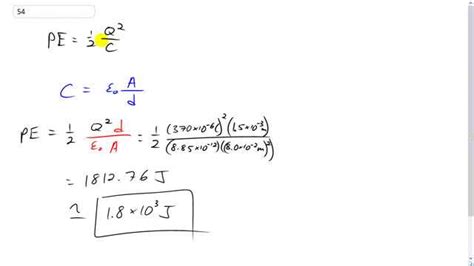 54
PE = 1/2 Q²/C
C = ε₀ A/d
PE = 1/2 Q²d/ε₀A = 1/2 (370×10⁻⁶C)²(1.5×10⁻³m)/(8.85×10⁻¹²)(8.0×10⁻²m)²
= 1812.76 J
≈ 1.8×10³ J
54